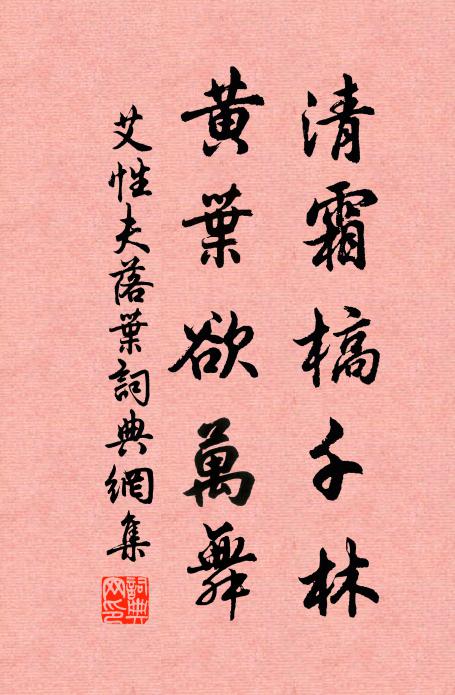 清霜槁千林
黄葉欲萬舞
艾性夫落葉詞典網集
詞典网印